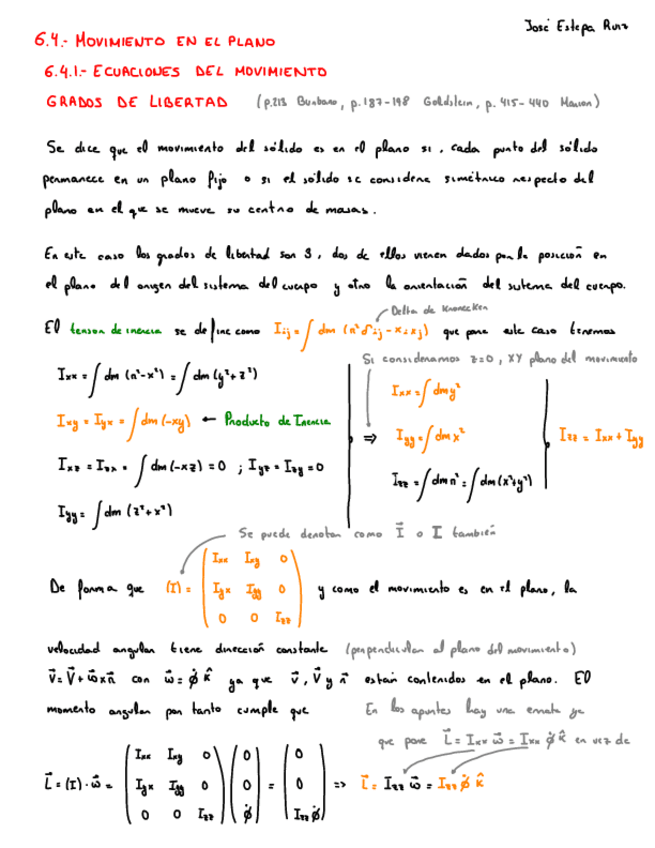 José Estepa Ruiz
6.4.- MOVIMIENTO EN EL PLANO
6.4.1.- ECUACIONES DEL MOVIMIENTO
GRADOS DE LIBERTAD (p.213 Burbano, p.187-198 Goldstein, p.415-440 Marion)
Se dice que el movimiento del sólido es en el plano si, cada punto del sólido
permanece en un plano fijo o si el sólido se considera simétrico respecto del
plano en el que se mueve su centro de masas.
En este caso los grados de libertad son 3, dos de ellos vienen dados por la posición en
el plano del origen del sistema del cuerpo y otro la orientación del sistema del cuerpo.
Delta de Kronecker
El tensor de inercia se define como Iij = ∫ dm (r² δij - xi xj) que para este caso tenemos
Si consideramos z=0, XY plano del movimiento
Ixx = ∫ dm (r²-x²) = ∫ dm (y²+z²)
Ixx = ∫ dm y²
Ixy = Iyx = ∫ dm (-xy) ← Producto de Inercia
⇒ Iyy = ∫ dm x²
Izz = Ixx + Iyy
Ixz = Izx = ∫ dm (-xz) = 0 ; Iyz = Izy = 0
Izz = ∫ dm r² = ∫ dm (x²+y²)
Iyy = ∫ dm (z²+x²)
Se puede denotar como I⃗ o I también
De forma que (I) = ( Ixx Ixy 0
Iyx Iyy 0
0 0 Izz ) y como el movimiento es en el plano, la
velocidad angular tiene dirección constante (perpendicular al plano del movimiento)
v⃗ = V⃗ + ω⃗ x r⃗ con ω⃗ = φ̇ k̂ ya que v⃗, V⃗ y r⃗ están contenidos en el plano. El
momento angular por tanto cumple que
En los apuntes hay una errata ya
que pone L⃗ = Ixx ω⃗ = Ixx φ̇ k̂ en vez de
L⃗ = (I) · ω⃗ = ( Ixx Ixy 0
Iyx Iyy 0
0 0 Izz ) ( 0
0
φ̇ ) = ( 0
0
Izz φ̇ ) => L⃗ = Izz ω⃗ = Izz φ̇ k̂